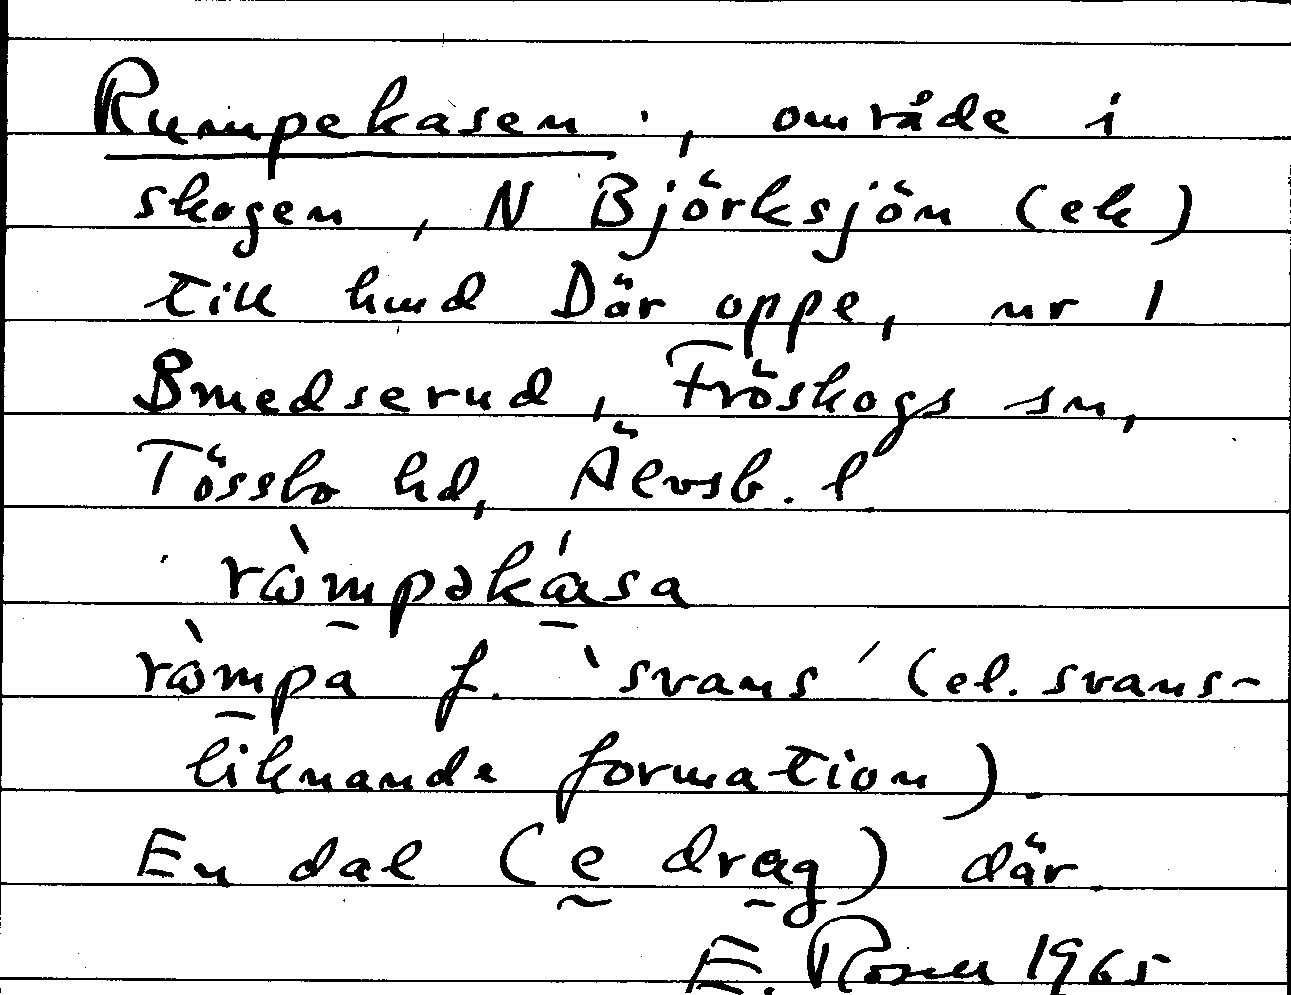 Rumpekasen, område i
skogen, N Björksjön (ek)
till hmd Där oppe, nr 1
Bmedserud, Fröskogs sn,
Tössbo hd, Älvsb. l
ròmpəkása
ròmpa f. 'svans' (el. svans-
liknande formation).
En dal (e drag) där.
E. Rosell 1965